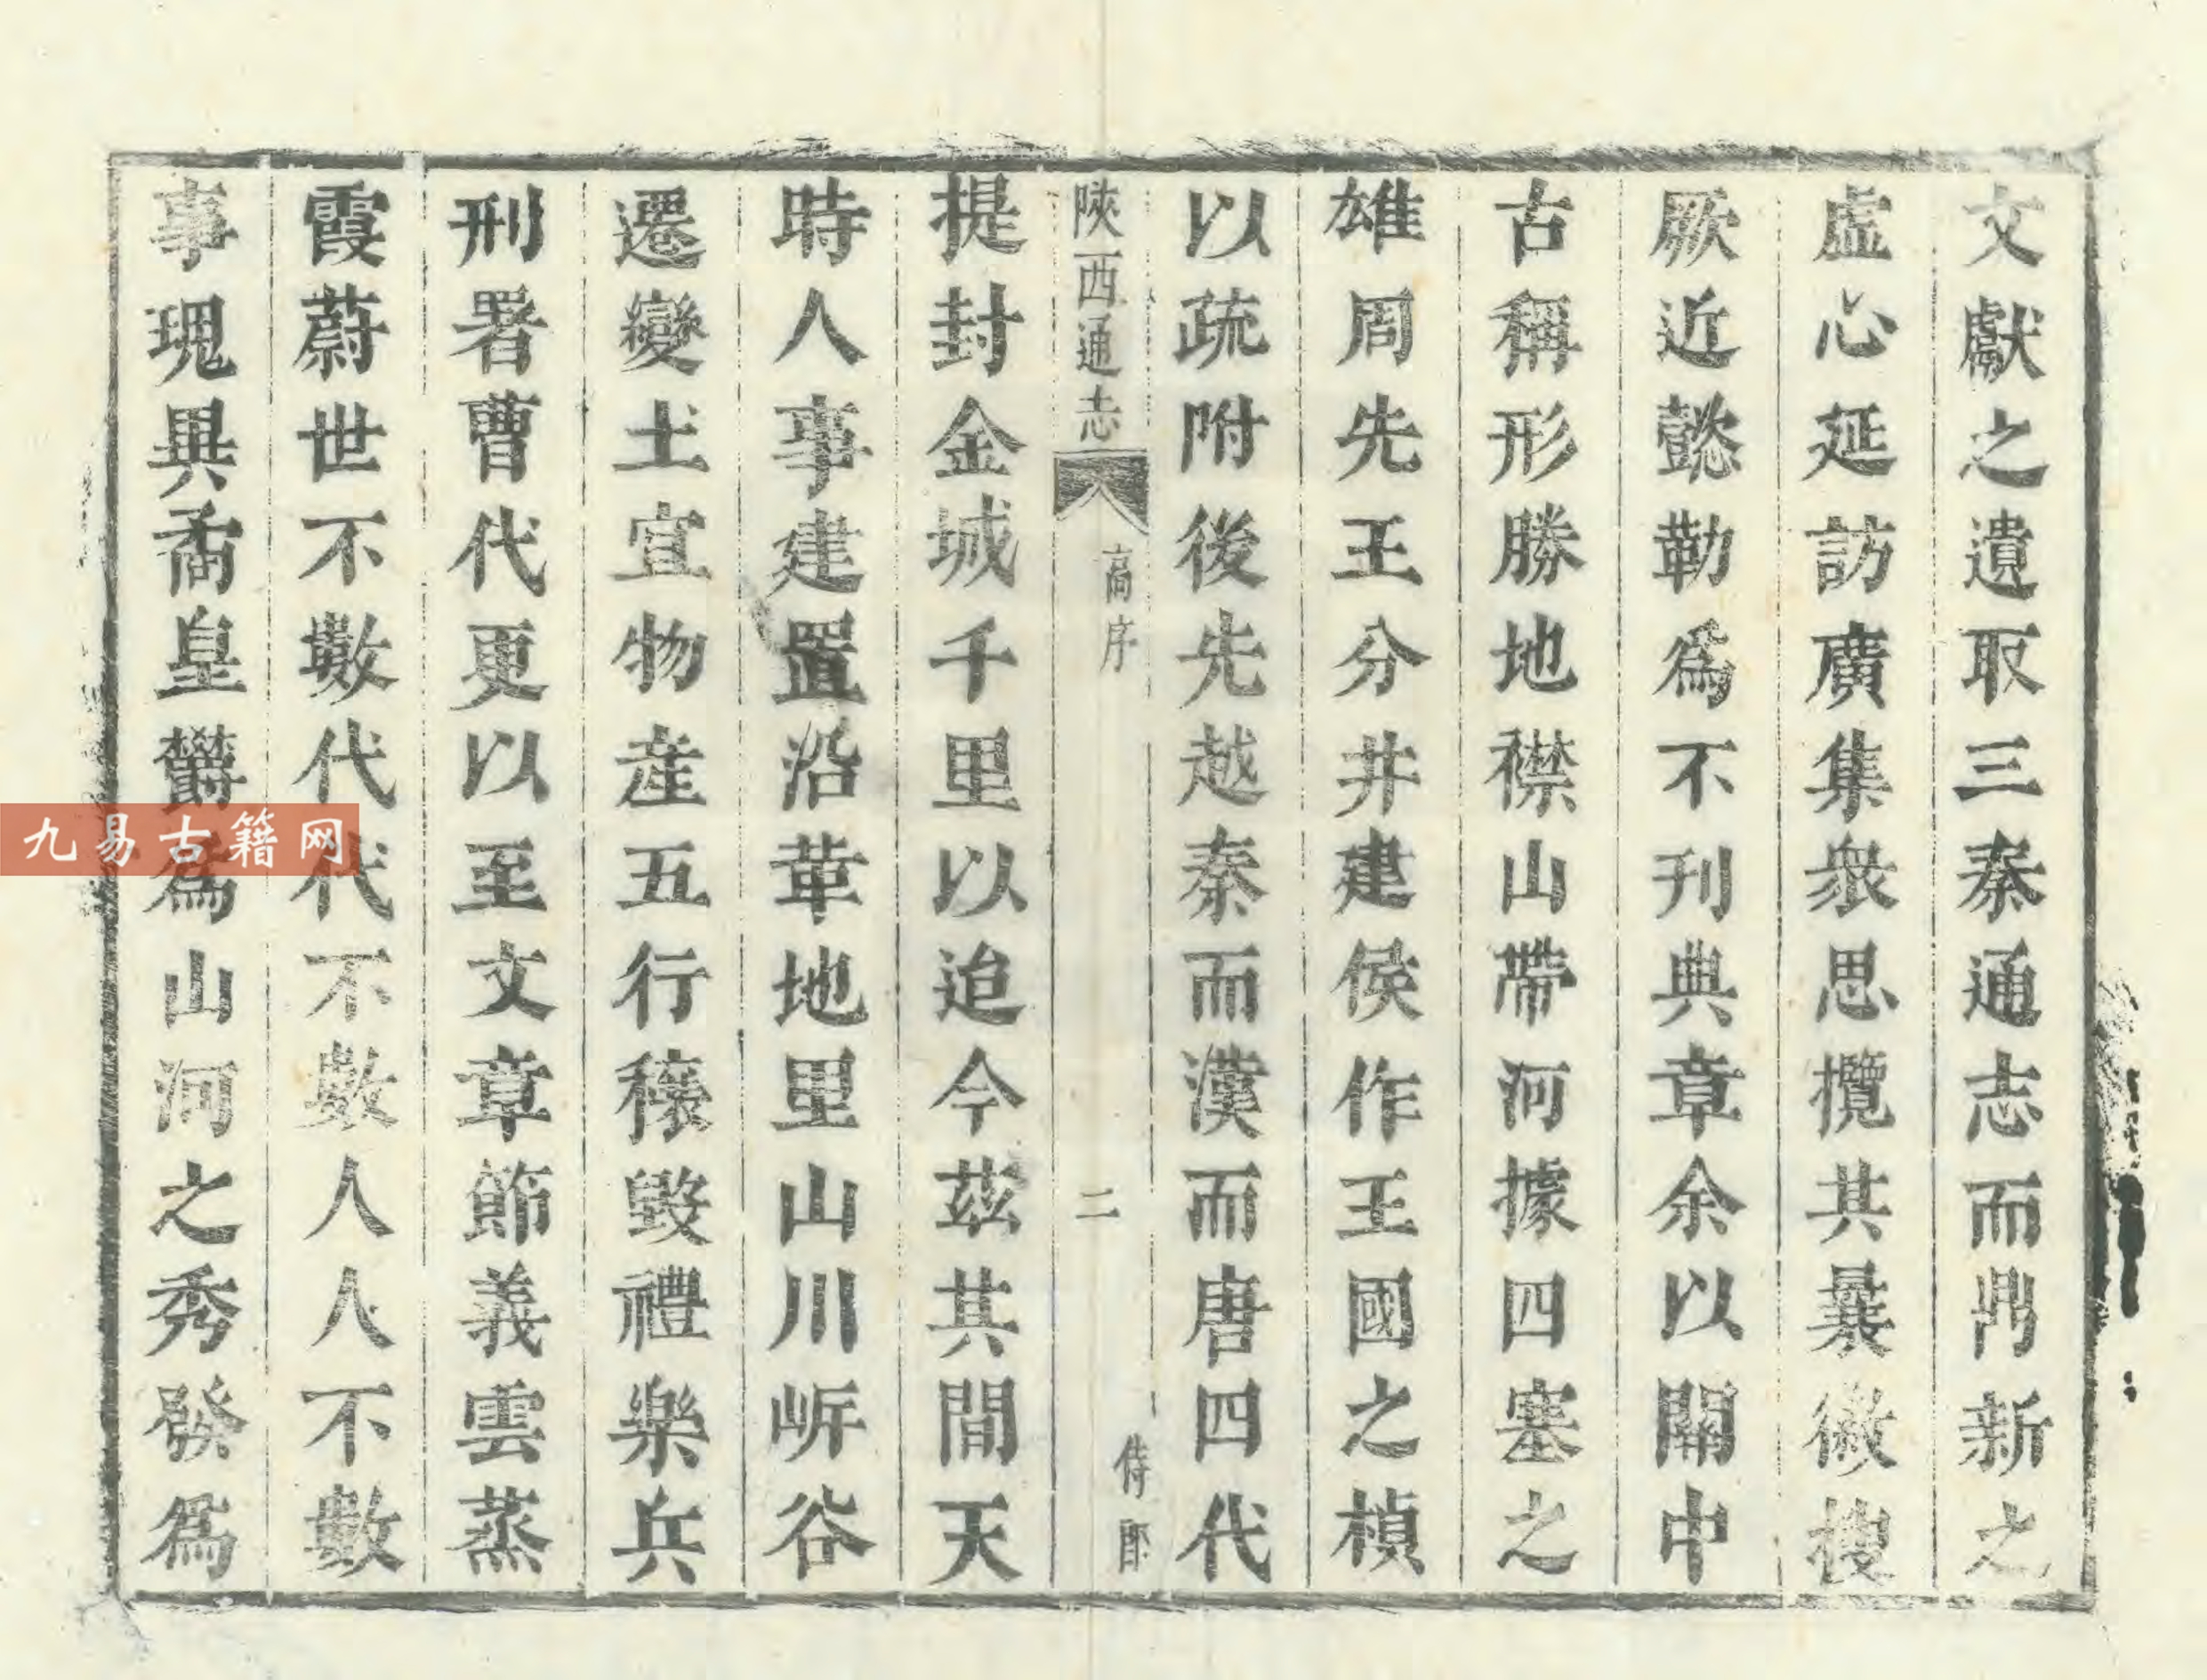 文獻之遺取三秦通志而鼎新之
虛心延訪廣集衆思攬其㬥徵搜
厥近懿勒爲不刊典章余以關中
古稱形勝地襟山帶河據四塞之
雄周先王分井建侯作王國之楨
以疏附後先越秦而漢而唐四代
陝西通志
高序
二
侍郎
提封金城千里以迨今茲其間天
時人事建置沿革地里山川岓谷
遷變土宜物産五行穰毀禮樂兵
刑署曹代更以至文章節義雲蒸
霞蔚世不數代代不數人人不數
事瑰異矞皇欝爲山河之秀發爲
九易古籍网